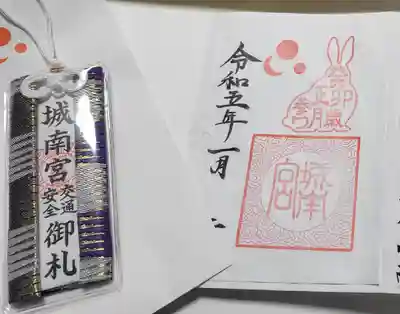 城南宮
交通
安全
御札
令和五年一月
癸卯歳
正月
城南
宮